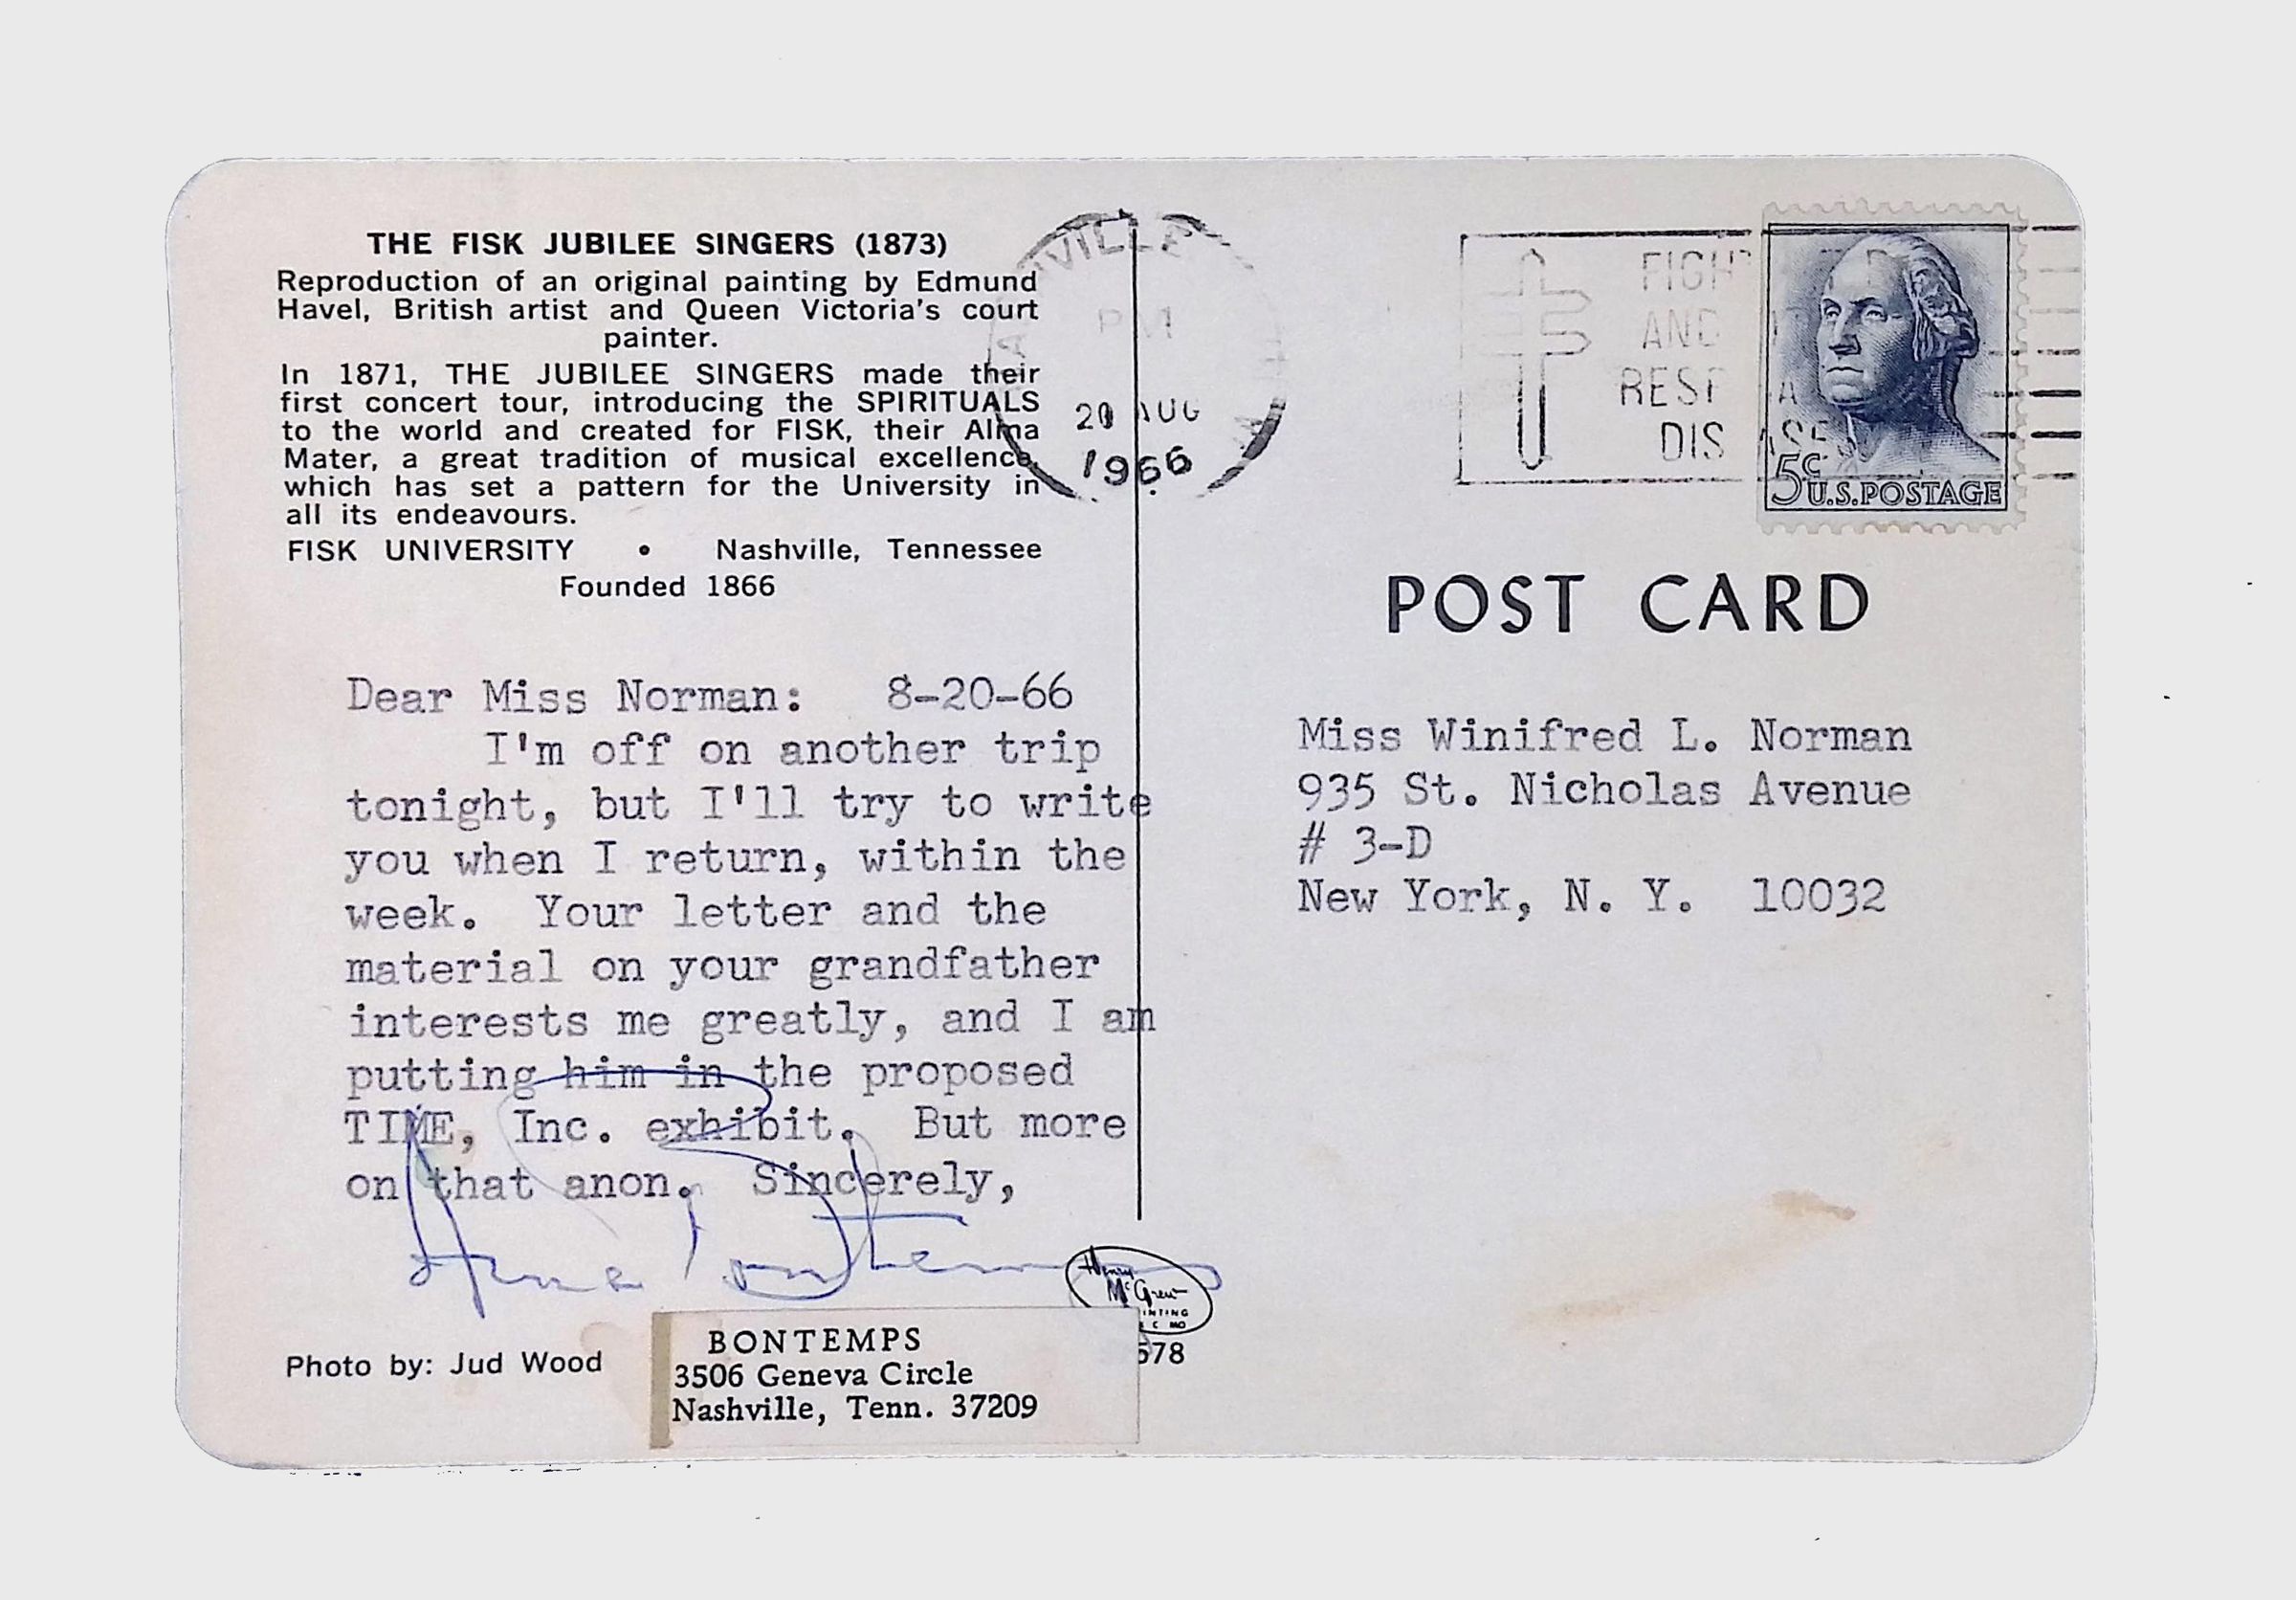 THE FISK JUBILEE SINGERS (1873)
Reproduction of an original painting by Edmund
Havel, British artist and Queen Victoria's court
painter.
In 1871, THE JUBILEE SINGERS made their
first concert tour, introducing the SPIRITUALS
to the world and created for FISK, their Alma
Mater, a great tradition of musical excellence,
which has set a pattern for the University in
all its endeavours.
FISK UNIVERSITY • Nashville, Tennessee
Founded 1866
PM
20 AUG
1966
FIGHT
AND
5¢
U.S.POSTAGE
POST CARD
Dear Miss Norman: 8-20-66
I'm off on another trip
tonight, but I'll try to write
you when I return, within the
week. Your letter and the
material on your grandfather
interests me greatly, and I am
putting him in the proposed
TIME, Inc. exhibit. But more
on that anon. Sincerely,
Arna Bontemps
Miss Winifred L. Norman
935 St. Nicholas Avenue
# 3-D
New York, N. Y. 10032
Henry
McGrew
Photo by: Jud Wood
BONTEMPS
3506 Geneva Circle
Nashville, Tenn. 37209